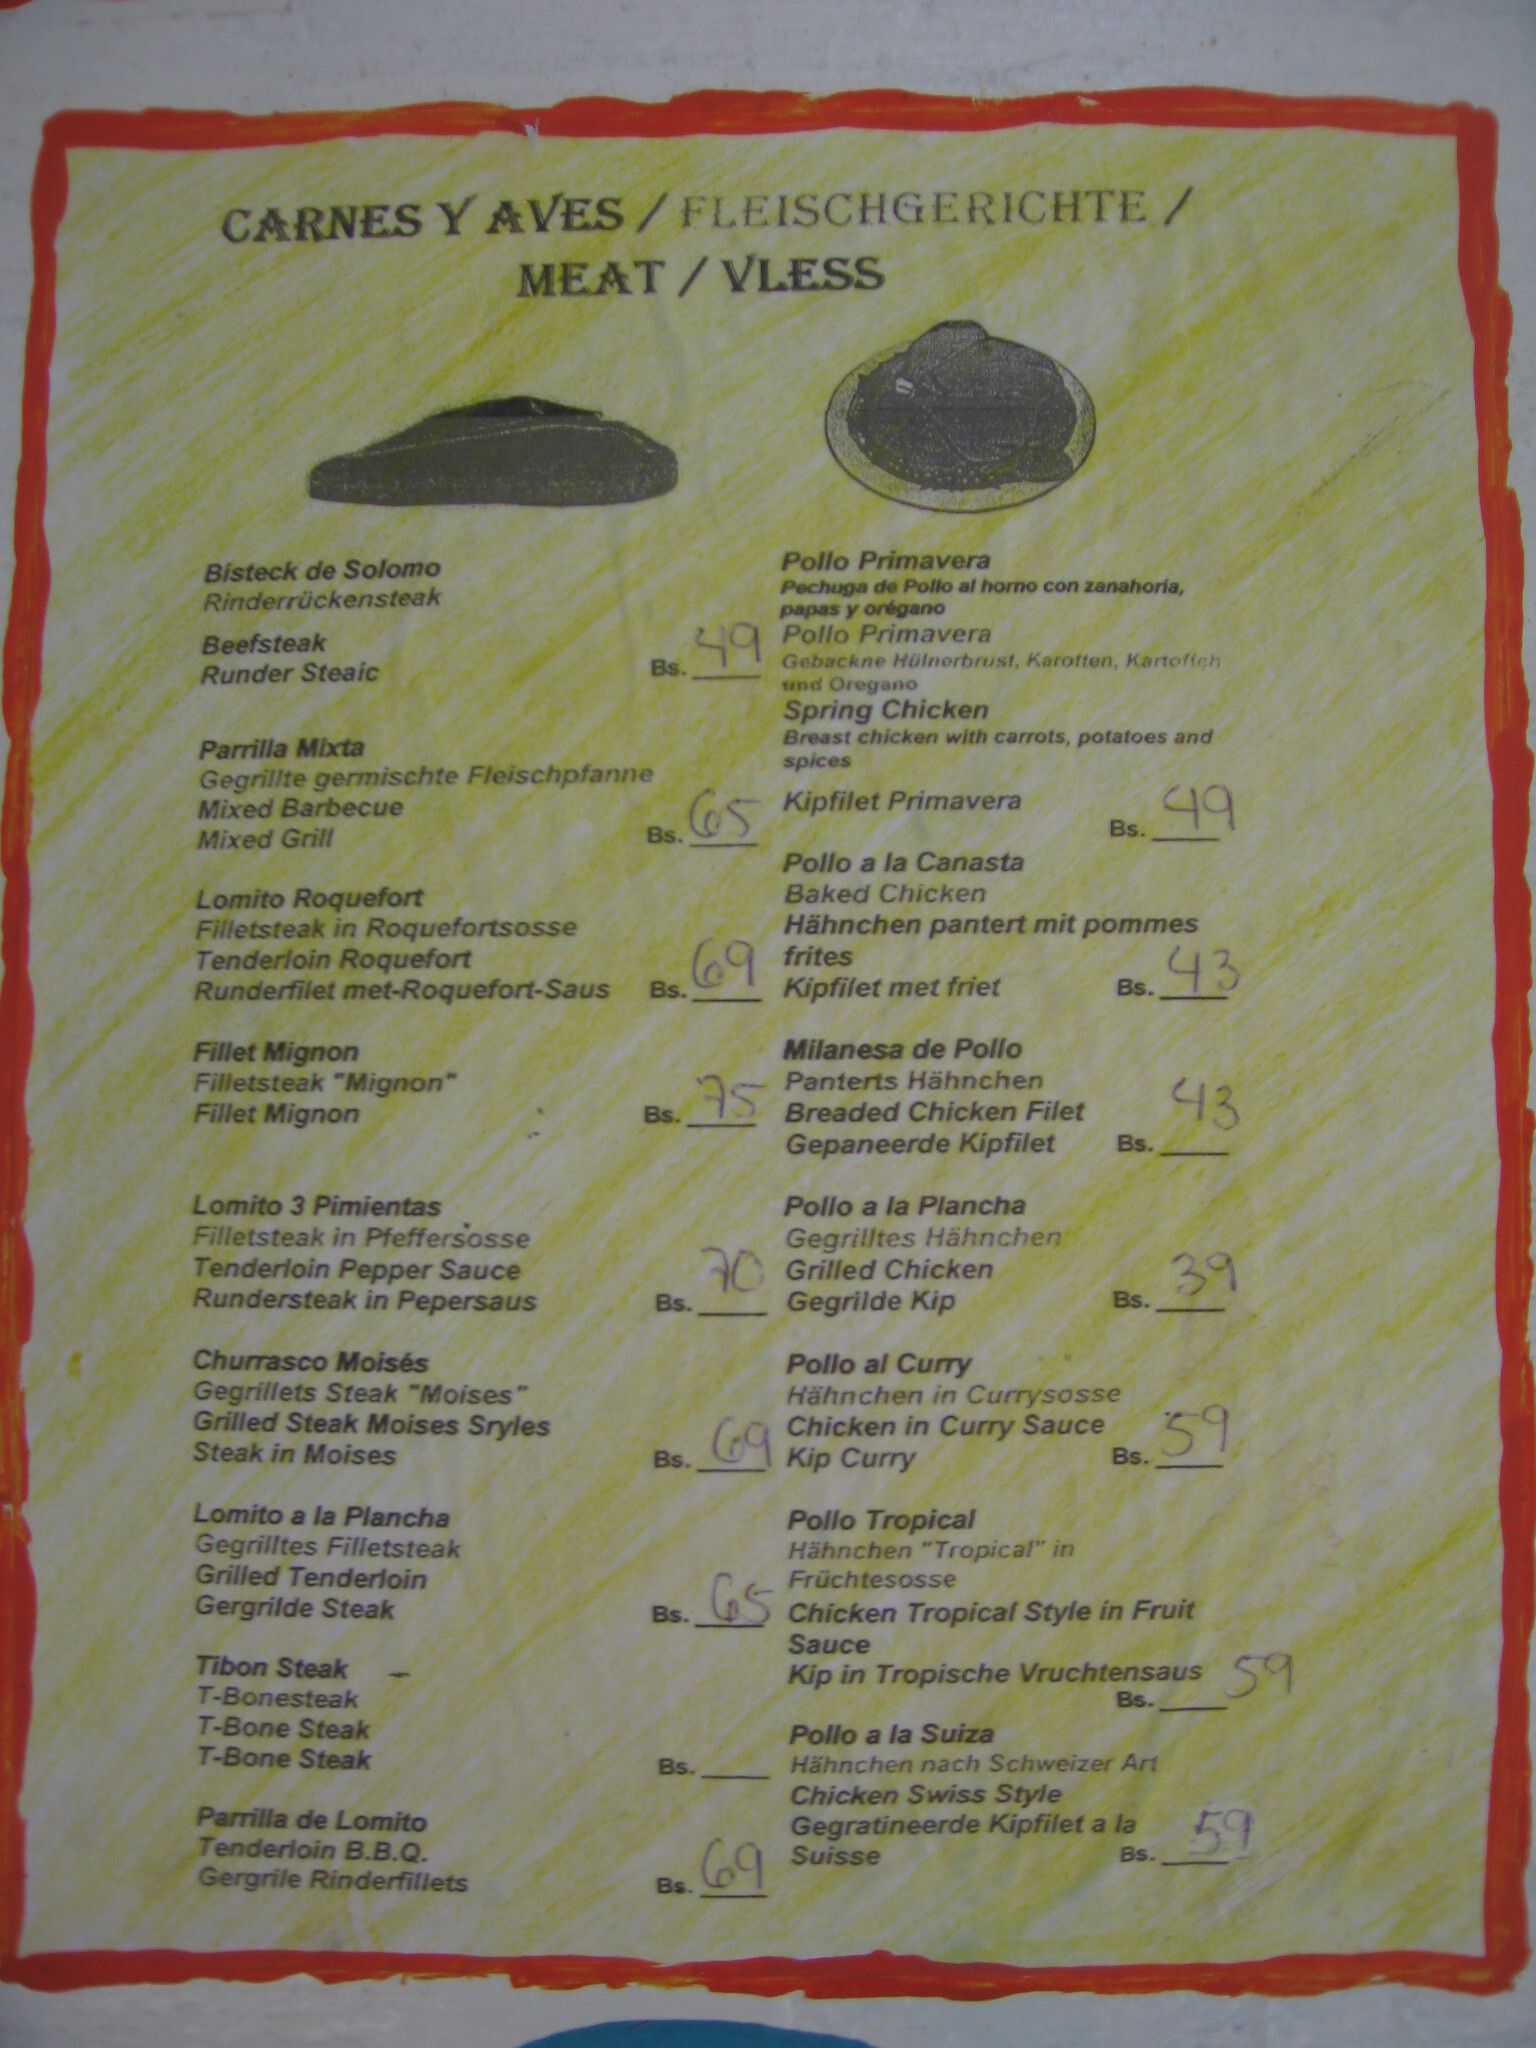 CARNES Y AVES / FLEISCHGERICHTE /
MEAT / VLESS
Bisteck de Solomo
Rinderrückensteak
Beefsteak
Runder Steaic Bs. 49
Parrilla Mixta
Gegrillte germischte Fleischpfanne
Mixed Barbecue
Mixed Grill Bs. 65
Lomito Roquefort
Filletsteak in Roquefortsosse
Tenderloin Roquefort
Runderfilet met-Roquefort-Saus Bs. 69
Fillet Mignon
Filletsteak "Mignon"
Fillet Mignon Bs. 75
Lomito 3 Pimientas
Filletsteak in Pfeffersosse
Tenderloin Pepper Sauce
Rundersteak in Pepersaus Bs. 70
Churrasco Moisés
Gegrillets Steak "Moises"
Grilled Steak Moises Sryles
Steak in Moises Bs. 69
Lomito a la Plancha
Gegrilltes Filletsteak
Grilled Tenderloin
Gergrilde Steak Bs. 65
Tibon Steak
T-Bonesteak
T-Bone Steak
T-Bone Steak Bs. ____
Parrilla de Lomito
Tenderloin B.B.Q.
Gergrile Rinderfillets Bs. 69
Pollo Primavera
Pechuga de Pollo al horno con zanahoria,
papas y orégano
Pollo Primavera
Gebackne Hülnerbrust, Karotten, Kartoffeln
und Oregano
Spring Chicken
Breast chicken with carrots, potatoes and
spices
Kipfilet Primavera Bs. 49
Pollo a la Canasta
Baked Chicken
Hähnchen pantert mit pommes
frites
Kipfilet met friet Bs. 43
Milanesa de Pollo
Panterts Hähnchen
Breaded Chicken Filet
Gepaneerde Kipfilet Bs. 43
Pollo a la Plancha
Gegrilltes Hähnchen
Grilled Chicken
Gegrilde Kip Bs. 39
Pollo al Curry
Hähnchen in Currysosse
Chicken in Curry Sauce
Kip Curry Bs. 59
Pollo Tropical
Hähnchen "Tropical" in
Früchtesosse
Chicken Tropical Style in Fruit
Sauce
Kip in Tropische Vruchtensaus
Bs. 59
Pollo a la Suiza
Hähnchen nach Schweizer Art
Chicken Swiss Style
Gegratineerde Kipfilet a la
Suisse Bs. 59